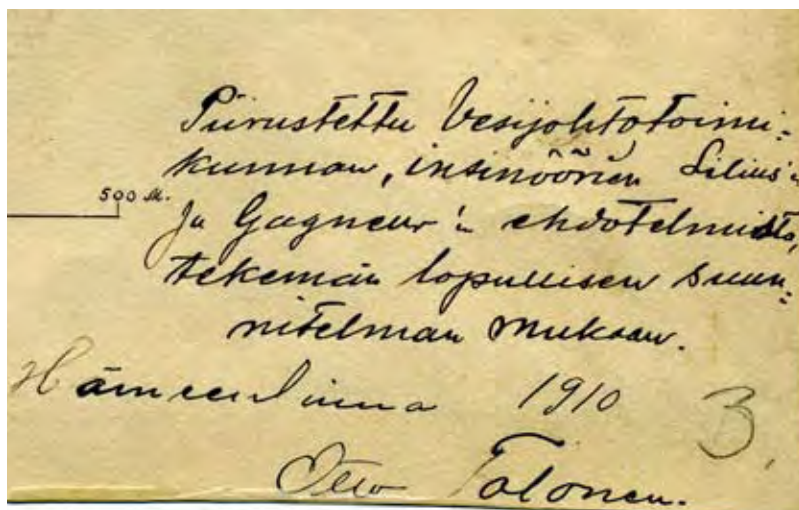 Piirustettu Vesijohtotoimi=
kunnan, insinöörien Lilius'in
500 M.
ja Gagneur'in ehdotelmista,
tekemän lopullisen suun=
nitelman mukaan.
Hämeenlinna 1910
3.
Otto Tolonen.